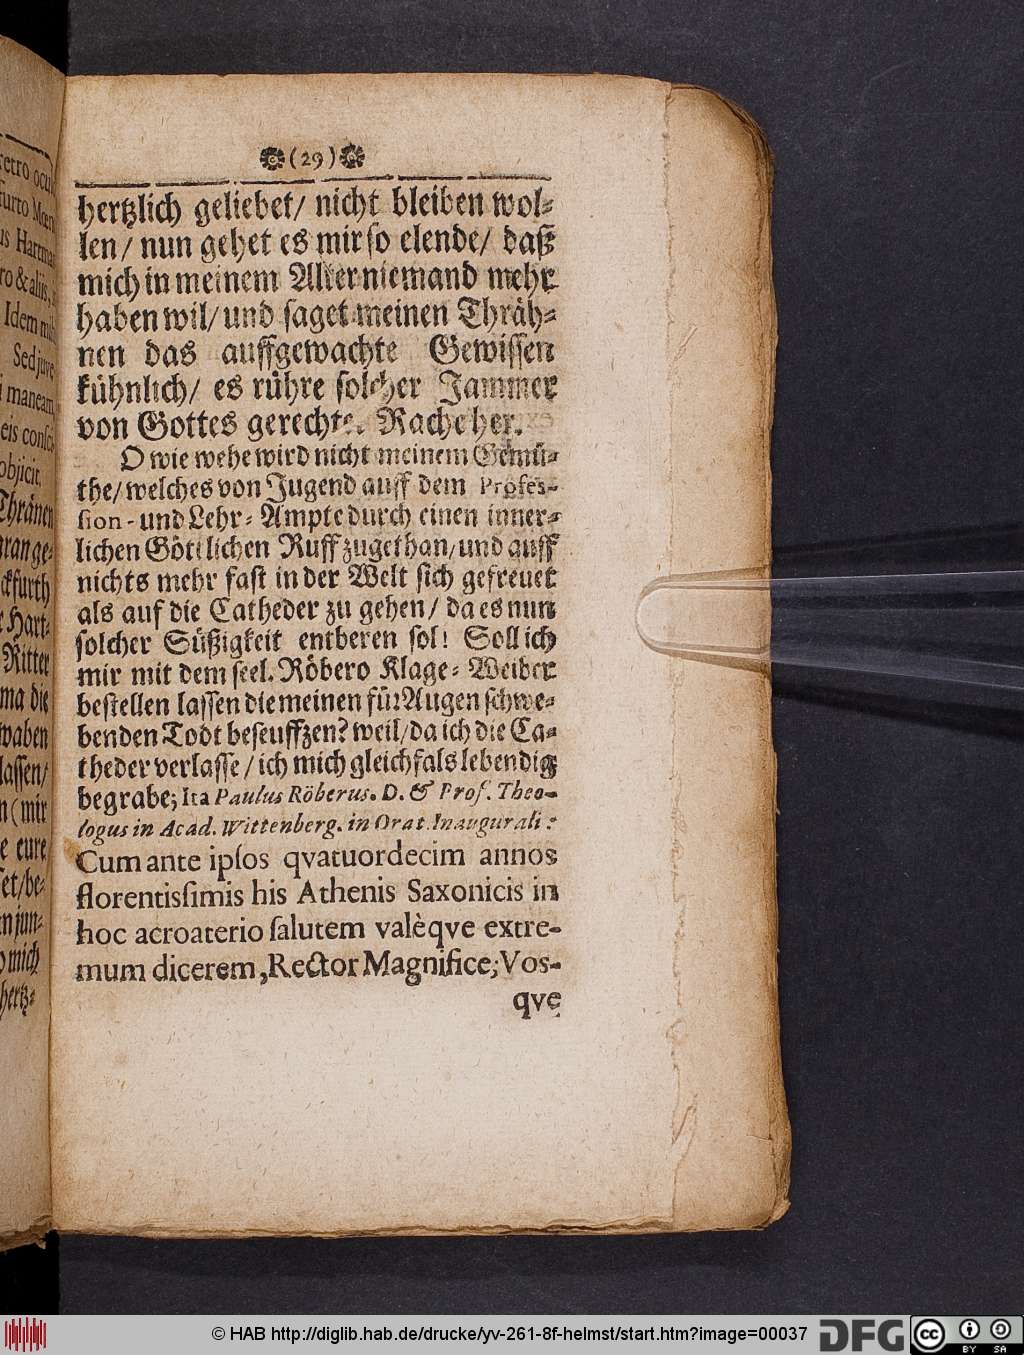 (29)
hertzlich geliebet/ nicht bleiben wol⸗
len/ nun gehet es mir so elende/ daß
mich in meinem Alter niemand mehr
haben wil/ und saget meinen Thräh⸗
nen das auffgewachte Gewissen
kühnlich/ es rühre solcher Jammer
von Gottes gerechte. Rache her.
O wie wehe wird nicht meinem Gemü⸗
the/ welches von Jugend auff dem Profes-
sion - und Lehr⸗ Ampte durch einen inner⸗
lichen Göttlichen Ruff zugethan/ und auff
nichts mehr fast in der Welt sich gefreuet
als auf die Catheder zu gehen/ da es nun
solcher Süßigkeit entberen sol! Soll ich
mir mit dem seel. Röbero Klage⸗ Weiber
bestellen lassen die meinen für Augen schwe⸗
benden Todt beseuffzen? weil/ da ich die Ca⸗
theder verlasse / ich mich gleichfals lebendig
begrabe; Ita Paulus Röberus. D. & Prof. Theo-
logus in Acad. Wittenberg. in Orat. Inaugurali:
Cum ante ipſos qvatuordecim annos
florentisſimis his Athenis Saxonicis in
hoc acroaterio ſalutem valèqve extre-
mum dicerem, Rector Magnifice; Vos-
qve
retro ocu
furto Mœn
us Hartma
ro & aliis,
Idem mih
Sed juve
i maneam,
eis conſci
objicit,
Thränen
ran ge⸗
ckfurth
r Hart⸗
Ritter
ma die
waben
lassen/
n (mir
e eure
et/ be⸗
n jun⸗
o mich
hertz⸗
© HAB http://diglib.hab.de/drucke/yv-261-8f-helmst/start.htm?image=00037
DFG
cc
BY SA